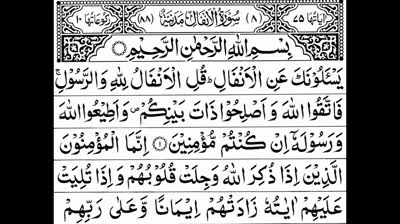 اٰيَاتُهَا ٧٥ (٨) سُوْرَةُ الْاَنْفَالِ مَدَنِيَّةٌ (٨٨) رُكُوْعَاتُهَا ١٠
بِسْمِ اللّٰهِ الرَّحْمٰنِ الرَّحِيْمِ
يَسْـَٔلُوْنَكَ عَنِ الْاَنْفَالِ ؕ قُلِ الْاَنْفَالُ لِلّٰهِ وَالرَّسُوْلِ ۚ
فَاتَّقُوا اللّٰهَ وَاَصْلِحُوْا ذَاتَ بَيْنِكُمْ ۪ وَاَطِيْعُوا اللّٰهَ
وَرَسُوْلَهٗۤ اِنْ كُنْتُمْ مُّؤْمِنِيْنَ ۝١ اِنَّمَا الْمُؤْمِنُوْنَ
الَّذِيْنَ اِذَا ذُكِرَ اللّٰهُ وَجِلَتْ قُلُوْبُهُمْ وَاِذَا تُلِيَتْ
عَلَيْهِمْ اٰيٰتُهٗ زَادَتْهُمْ اِيْمَانًا وَّعَلٰى رَبِّهِمْ